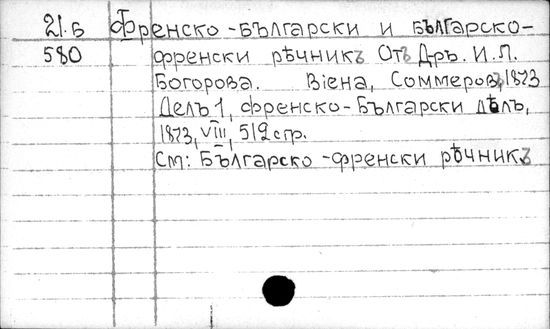 21.Б Френско-Български и Българско-
580 френски рѣчникъ Отъ Дръ. И.П.
Богорова. Виена, Соммеровъ, 1873
Делъ 1, френско-Български дѣлъ,
1873, VIII, 512 стр.
См: Българско-френски рѣчникъ